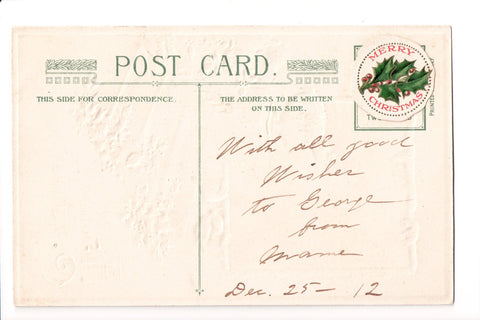 POST CARD.
THIS SIDE FOR CORRESPONDENCE.
THE ADDRESS TO BE WRITTEN
ON THIS SIDE.
MERRY
CHRISTMAS
PRINTED
With all good
Wishes
to George
from
Mame
Dec. 25 - 12